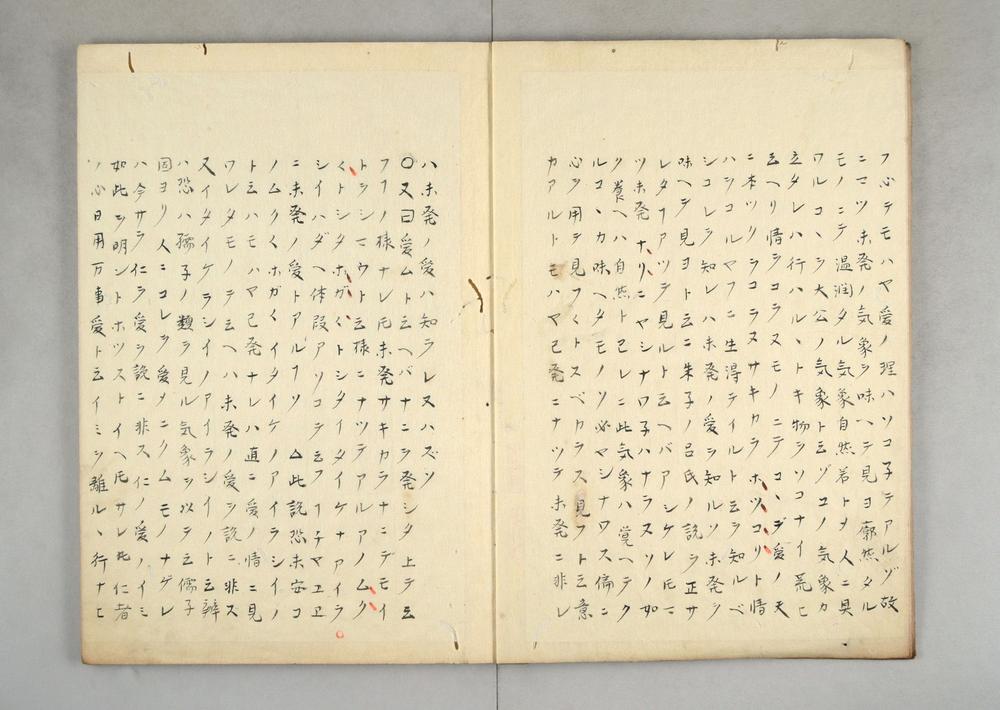 フ心テモハヤ愛ノ理ハソコ子テアルゾ故
ニマツ未発ノ気象ヲ味ヘテ見ヨ廓然タル
モノニテ温潤タル気象自然若トメ人ニ具
ワルコヽヲ大公ノ気象ト云ゾユノ気象カ
立タレハ行ハルヽトキ物ヲソコナイ荒ヒ
云ヘリ情ヲコラヌモノニテコヽデ愛ノ天
ニ本ツリマコラヌサキカラホツコリト情
ハシコルマフニ生得テイルト云ヲ知ルベ
シコレヲ知レハ未発ノ愛ヲ知ルソ未発ヲ
味ヘテ見ヨト云ニ朱子ノ呂氏ノ説ヲ正サ
レタフアツテ見ルトヘバアシケレ𪜈ニ
ツ未発ナリニヤシナワ子ハナラスソノ如
ク養ヘハ自然ト已レニ此気象ハ覚ヘテク
ルコヽカ味ヘタモノソ必マシナワス偏ニ
心ヲ用テ見フ〱トスベカラス見フト云意
カアルトモハマ已発ニナツテ未発ニ非レ
ハ未発ノ愛ハ知ラレヌハズソ
〇又曰愛ムト云ヘバナニヲ発シタ上テ云
フフノ様ナレ𪜈未発サキカラナニデモイ
トヲシマウト云様ニナツテアルアノムク
〱トシタホガ〱トシタイタイケナアイラ
シイハダヘ体段アソコヲ云フ子マヱヱ
ニ未発ノ愛トアルフソ △此説恐未安コ
ノムク〱ホガ〱イタイケノアイラシイノ
ト云ハモハマ已発ナレハ直ニ愛ノ情ニ見
ワレタモノテ云ヘハ未発ノ愛ヲ説ニ非ス
又イタイケラシイノアイラシイノト云辨
ハ恐ハ孺子ノ類ヲ見ル気象ヲ以テ云儒子
固ヨリ人ニコレヲ愛メニクムモノナゲレ
ハ今サラ仁ヲ愛ヲ説ニ非ス仁ノ愛ノイミ
如此ヲ明ントホツストイヘ𪜈サレ𪜈仁者
ソ心日用万事愛ト云イミヲ離ルヽ行ナヒ